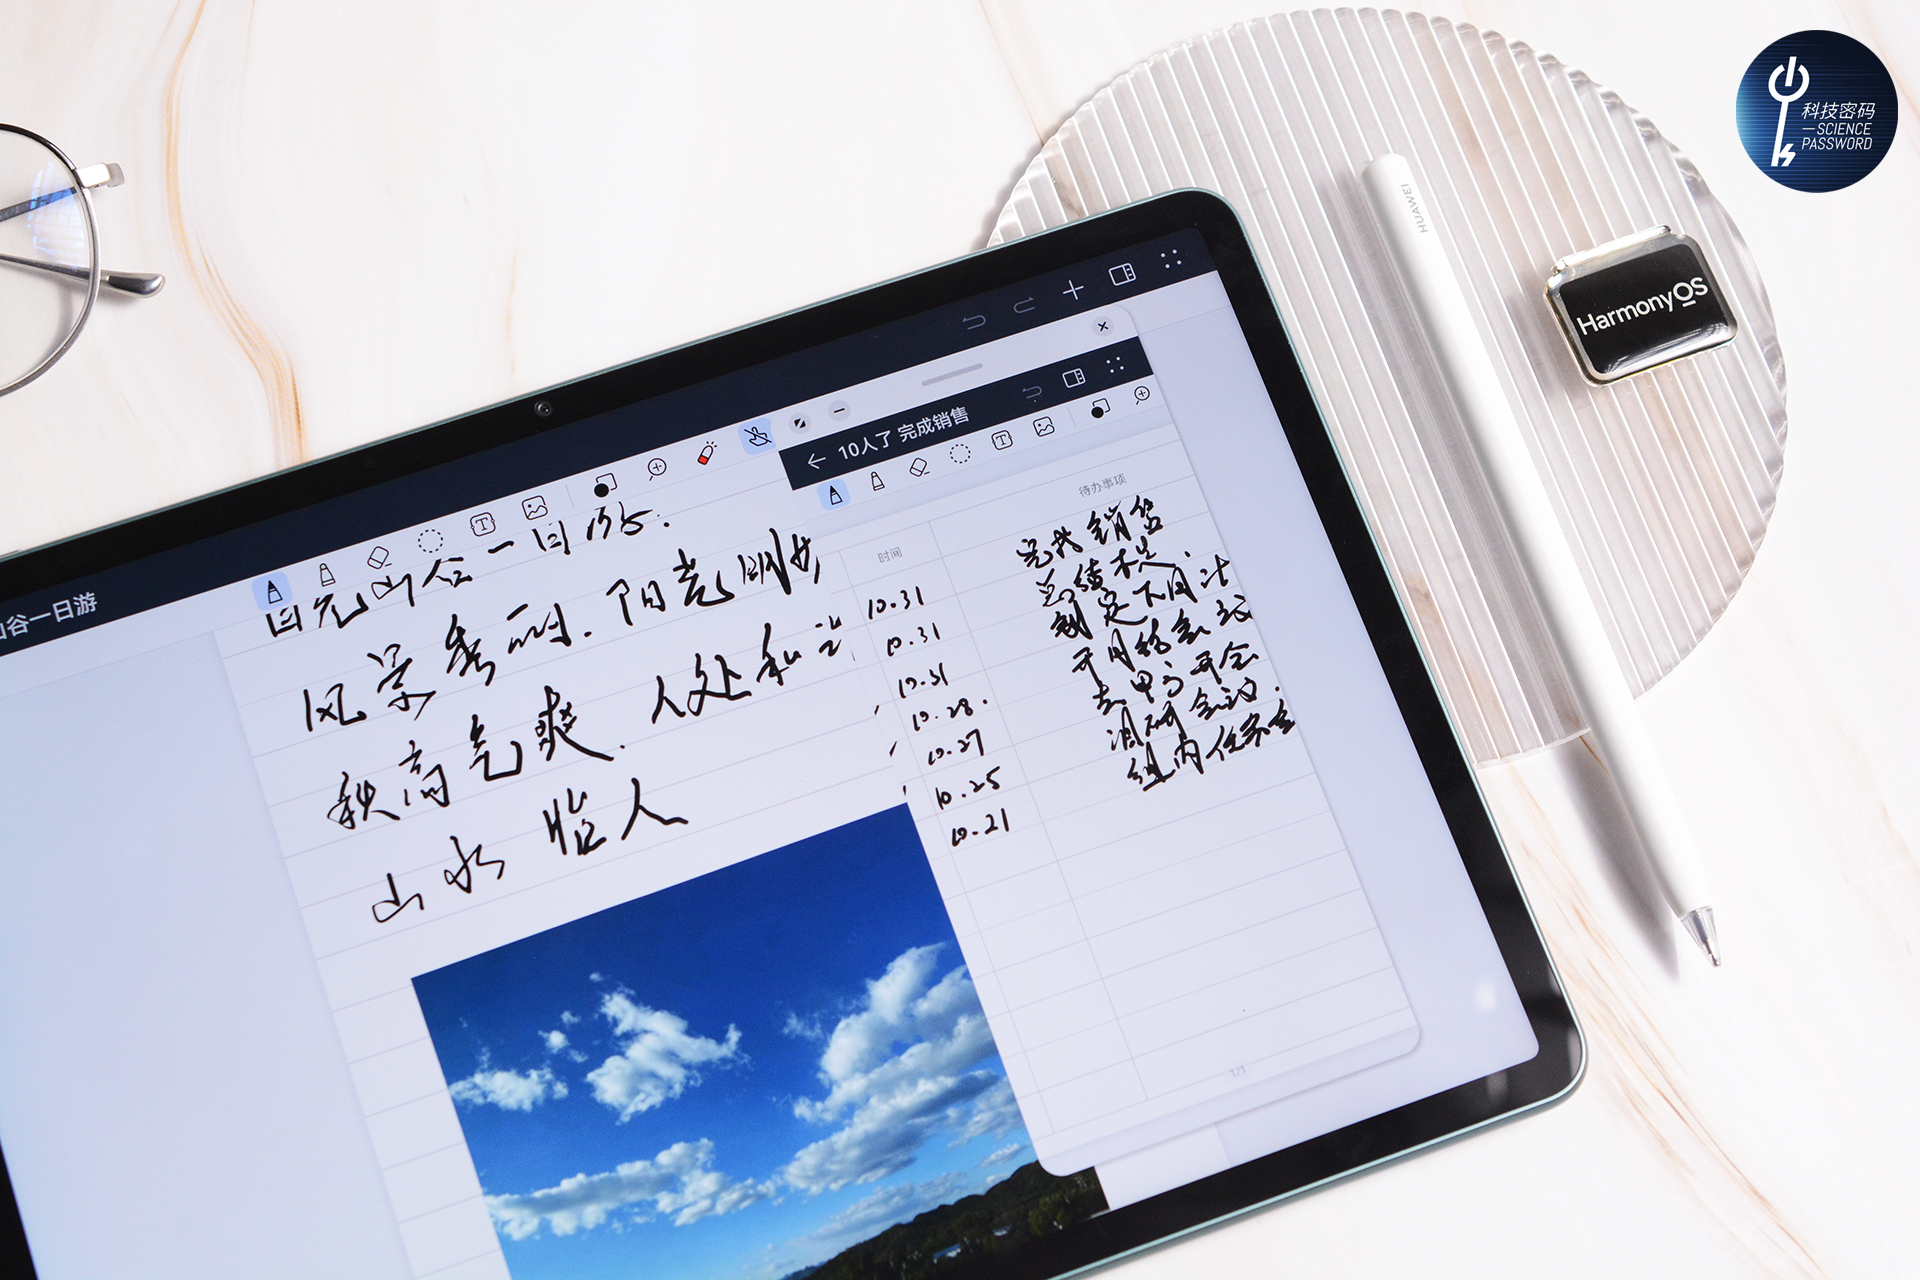 科技密码
SCIENCE
PASSWORD
HUAWEI
HarmonyOS
山谷一日游
山谷一日游.
风景秀丽.阳光明媚
秋高气爽.人处和
山水 怡人
10人了 完成销售
时间
待办事项
10.31
完成 销售
10.31
总结
10.31
制定下月计
10.28.
开月结会议
10.27
去甲方开会
10.25
调研会议.
10.21
组内任务
1/1